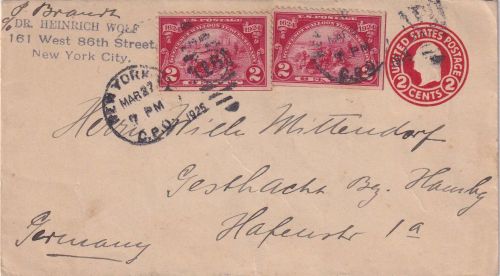 c/o Brandt
DR. HEINRICH WOLF
161 West 86th Street,
New York City.
1624 U.S. POSTAGE 1924
2 CENTS 2
1624 U.S. POSTAGE 1924
2 CENTS 2
UNITED STATES POSTAGE
2 CENTS 2
NEW YORK
MAR 27
7 PM
1925
G.P.O.
Herrn Wilh Mittendorf
Gesthacht Bez. Hambg
Hafenstr 1a
Germany